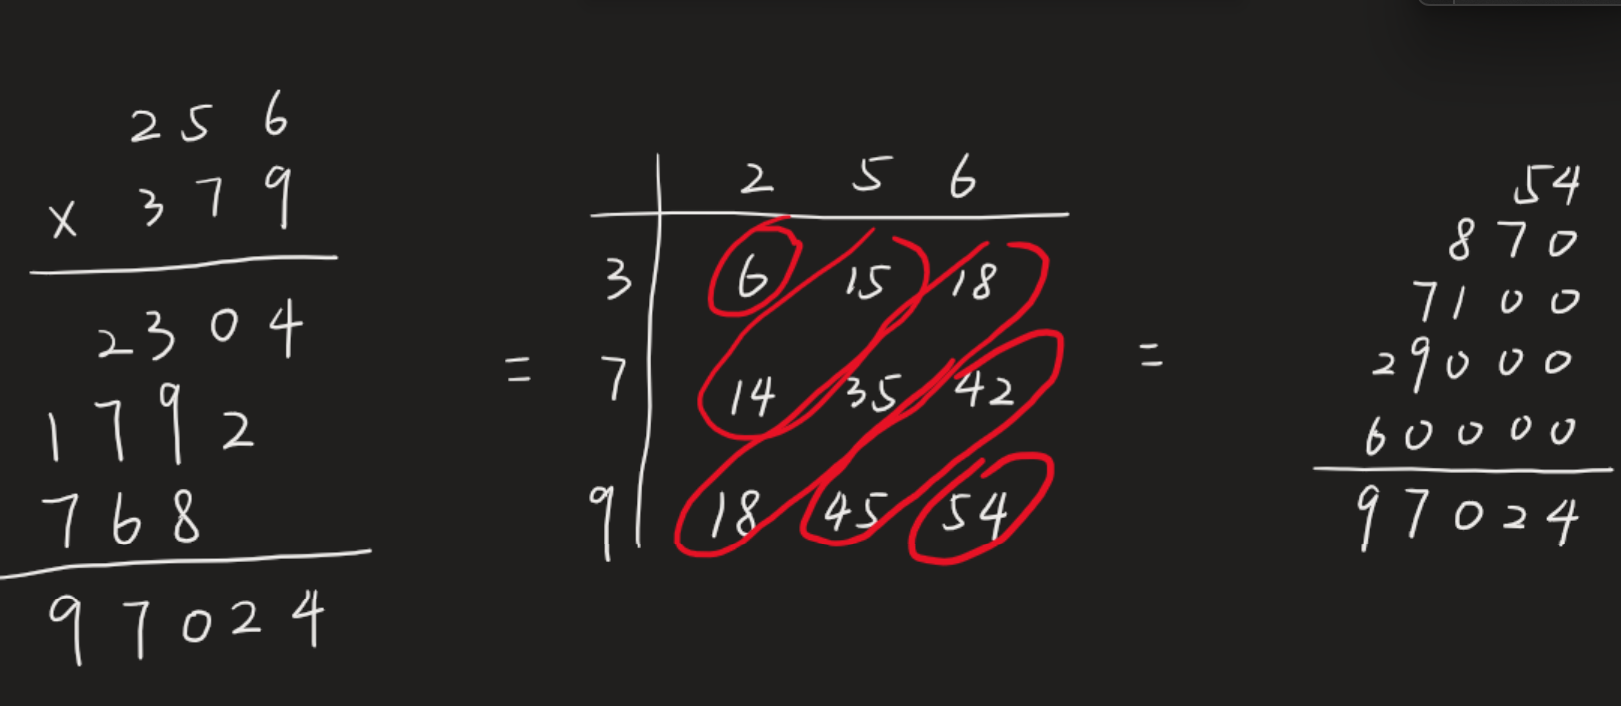 256
x 379
2304
1792
768
97024
=
2 5 6
3 6 15 18
7 14 35 42
9 18 45 54
=
54
870
7100
29000
60000
97024